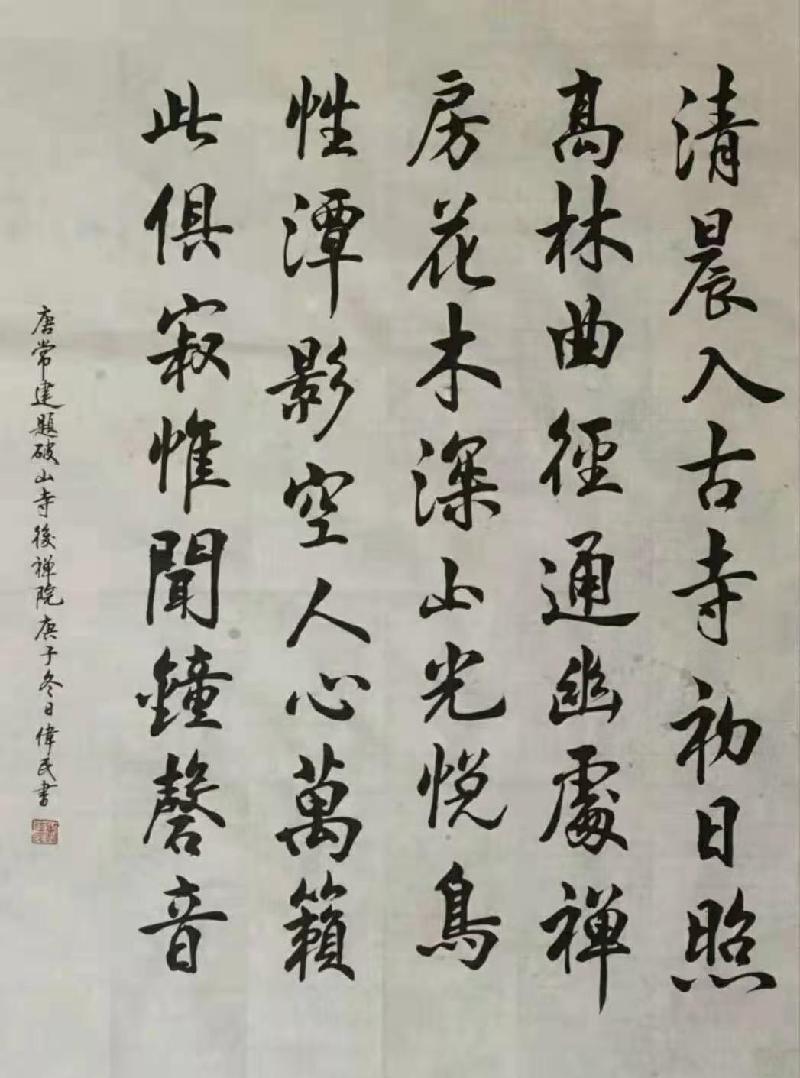 清晨入古寺初日照
高林曲徑通幽處禅
房花木深山光悦鳥
性潭影空人心萬籟
此俱寂惟聞鐘磬音
唐常建題破山寺後禅院庚子冬日偉民書